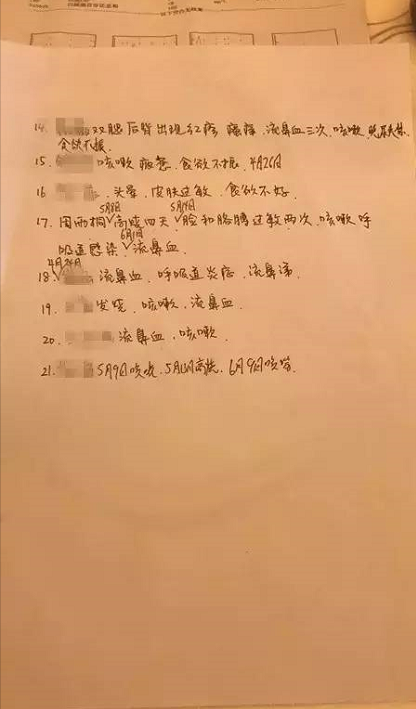 14. 双腿后背出现红疹 瘙痒、流鼻血三次、咳嗽、
食欲不振
15. 咳嗽 疲惫、食欲不振、4月26日
16. 、头晕、皮肤过敏、食欲不好。
5月8日 5月14日
17. 周雨桐√高烧四天√脸和胳膊过敏两次、咳嗽 呼
6月1日
吸道感染√流鼻血
4月26日
18. √流鼻血、呼吸道炎症、流鼻涕
19. 发烧、咳嗽、流鼻血、
20. 流鼻血、咳嗽
21. 5月9日咳嗽、高烧、6月9日咳嗽、